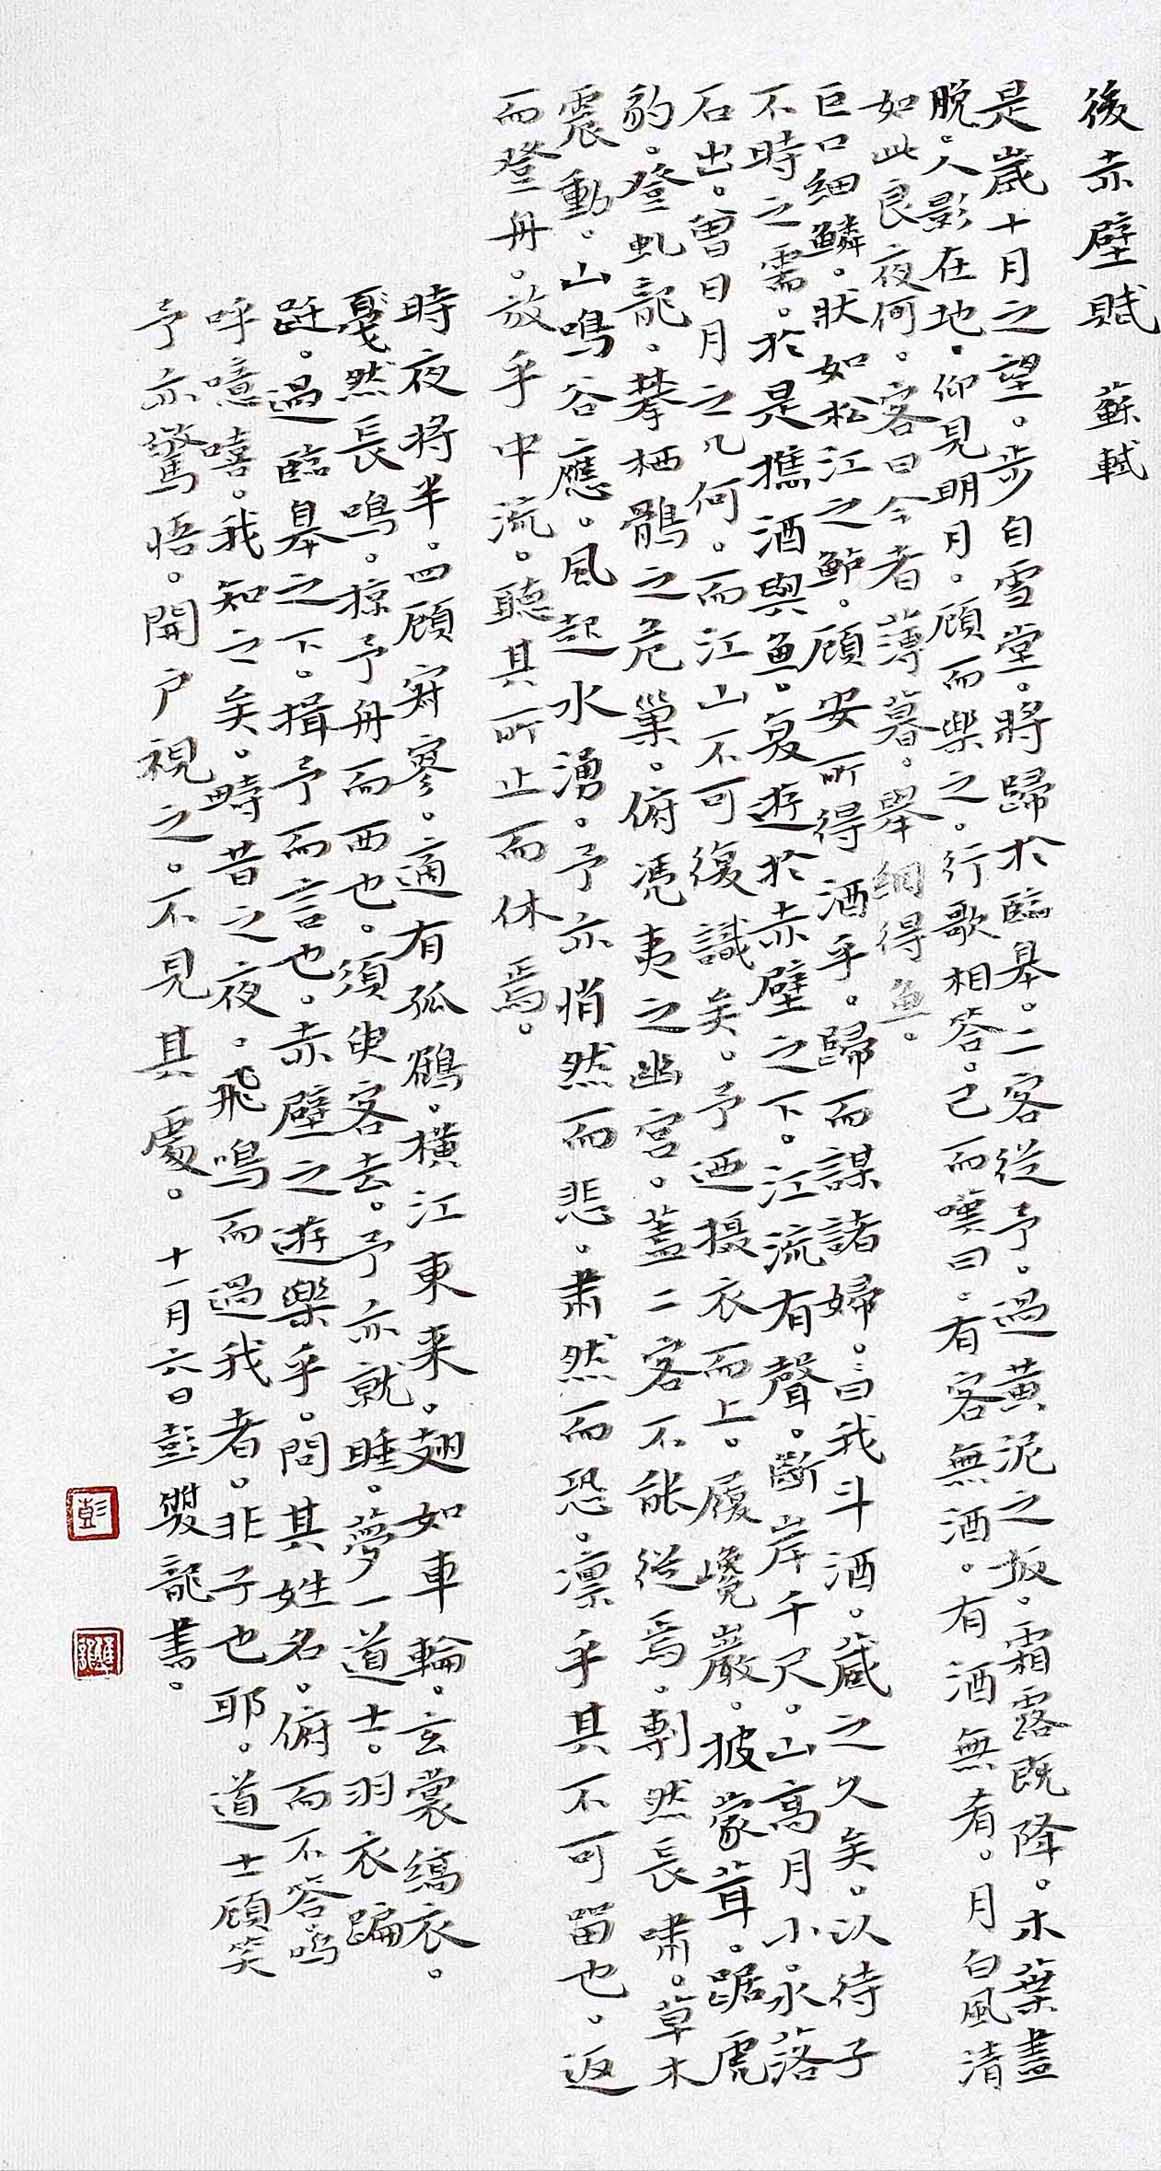 後赤壁賦 蘇軾
是歲十月之望。步自雪堂。將歸於臨皋。二客從予。過黃泥之坂。霜露既降。木葉盡
脫。人影在地。仰見明月。顧而樂之。行歌相答。已而嘆曰。有客無酒。有酒無肴。月白風清
如此良夜何。客曰今者薄暮。舉網得魚。
巨口細鱗。狀如松江之鲈。顧安所得酒乎。歸而謀諸婦。々曰我斗酒。藏之久矣。以待子
不時之需。於是攜酒與魚。復遊於赤壁之下。江流有聲。斷岸千尺。山高月小。水落
石出。曾日月之几何。而江山不可復識矣。予迺攝衣而上。履巉巖。披蒙茸。踞虎
豹。登虬龍。攀栖鶻之危巢。俯馮夷之幽宮。蓋二客不能從焉。劃然長嘯。草木
震動。山鳴谷應。風起水湧。予亦悄然而悲。肅然而恐。凜乎其不可留也。返
而登舟。放乎中流。聽其所止而休焉。
時夜將半。四顧寂寥。適有孤鶴。橫江東來。翅如車輪。玄裳縞衣。
戛然長鳴。掠予舟而西也。須臾客去。予亦就睡。夢一道士。羽衣蹁
跹。過臨皋之下。揖予而言也。赤壁之遊樂乎。問其姓名。俯而不答。嗚
呼噫嘻。我知之矣。疇昔之夜。飛鳴而過我者。非子也耶。道士顧笑
予亦驚悟。開戶視之。不見其處。十一月六日彭雙龍書。
彭